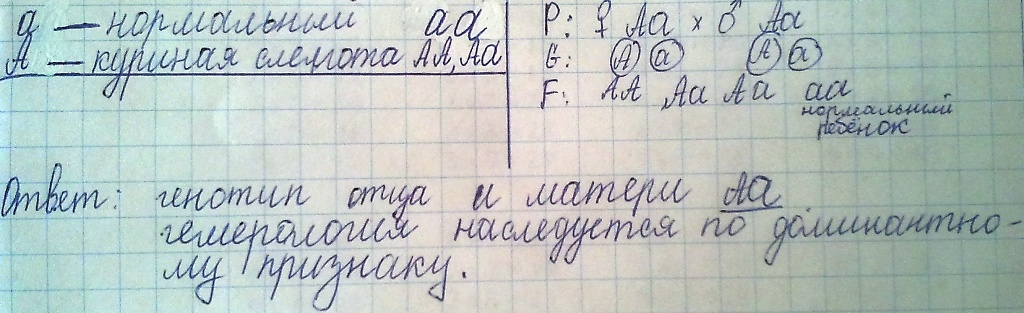 а — нормальный аа
А — куриная слепота АА, Аа
Р: ♀ Аа × ♂ Аа
G: А а А а
F: АА Аа Аа аа
нормальный
ребёнок
Ответ: генотип отца и матери Аа
гемералогия наследуется по доминантно-
му признаку.